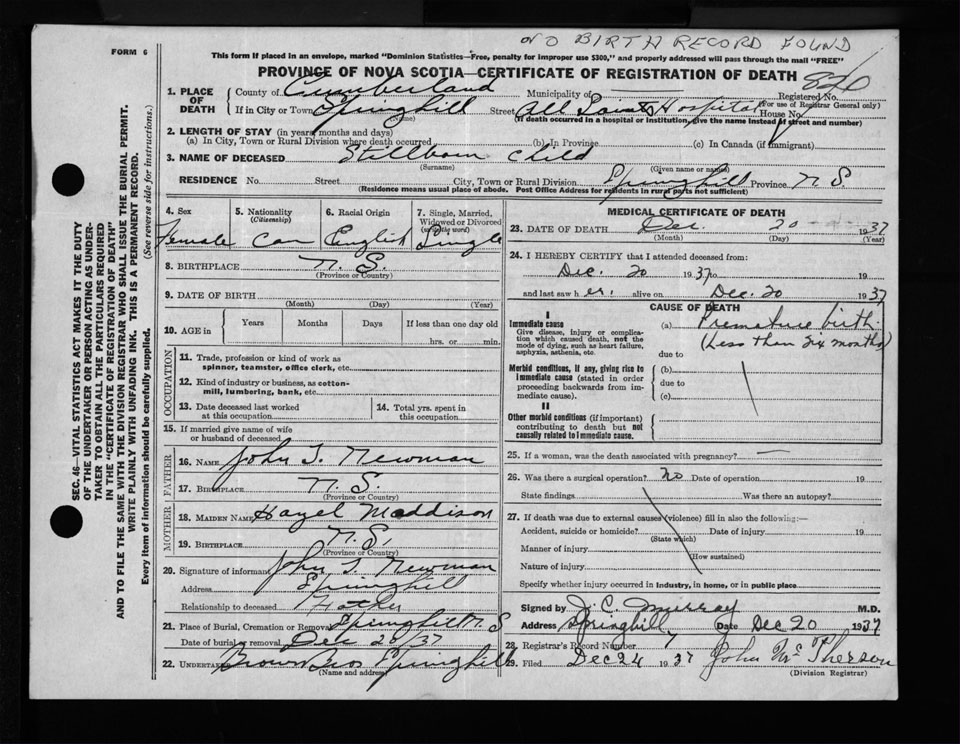 NO BIRTH RECORD FOUND
FORM 6
This form if placed in an envelope, marked "Dominion Statistics—Free, penalty for improper use $300," and properly addressed will pass through the mail "FREE"
PROVINCE OF NOVA SCOTIA—CERTIFICATE OF REGISTRATION OF DEATH
1. PLACE OF DEATH County of Cumberland Municipality of Registered No. 826
(For use of Registrar General only)
If in City or Town Springhill Street All Saints Hospital House No.
(Name) (If death occurred in a hospital or institution, give the name instead of street and number)
2. LENGTH OF STAY (in years, months and days)
(a) In City, Town or Rural Division where death occurred (b) In Province (c) In Canada (if immigrant)
3. NAME OF DECEASED Stillborn Child
(Surname) (Given name or names)
RESIDENCE No. Street City, Town or Rural Division Springhill Province N.S.
(Residence means usual place of abode. Post Office Address for residents in rural parts not sufficient)
SEC. 46—VITAL STATISTICS ACT MAKES IT THE DUTY
OF THE UNDERTAKER OR PERSON ACTING AS UNDER-
TAKER TO OBTAIN ALL THE PARTICULARS REQUIRED
IN THE "CERTIFICATE OF REGISTRATION OF DEATH"
AND TO FILE THE SAME WITH THE DIVISION REGISTRAR WHO SHALL ISSUE THE BURIAL PERMIT.
WRITE PLAINLY WITH UNFADING INK. THIS IS A PERMANENT RECORD.
Every item of information should be carefully supplied. (See reverse side for instructions.)
4. Sex
Female
5. Nationality
(Citizenship)
Can
6. Racial Origin
English
7. Single, Married,
Widowed or Divorced
(write the word)
Single
8. BIRTHPLACE N.S.
(Province or Country)
9. DATE OF BIRTH
(Month) (Day) (Year)
10. AGE in Years Months Days If less than one day old
hrs. or min.
OCCUPATION
11. Trade, profession or kind of work as
spinner, teamster, office clerk, etc.
12. Kind of industry or business, as cotton-
mill, lumbering, bank, etc.
13. Date deceased last worked
at this occupation
14. Total yrs. spent in
this occupation
15. If married give name of wife
or husband of deceased
FATHER
16. NAME John T. Newman
17. BIRTHPLACE N.S.
(Province or Country)
MOTHER
18. MAIDEN NAME Hazel Maddison
19. BIRTHPLACE N.S.
(Province or Country)
20. Signature of informant John T. Newman
Address Springhill
Relationship to deceased Father
21. Place of Burial, Cremation or Removal Springhill N.S
Date of burial or removal Dec 20/37
22. UNDERTAKER Brown Bros Springhill
(Name and address)
MEDICAL CERTIFICATE OF DEATH
23. DATE OF DEATH Dec. 20 1937
(Month) (Day) (Year)
24. I HEREBY CERTIFY that I attended deceased from:
Dec. 20 1937 to 19
and last saw her alive on Dec. 20 1937
CAUSE OF DEATH
I
Immediate cause
Give disease, injury or complica-
tion which caused death, not the
mode of dying, such as heart failure,
asphyxia, asthenia, etc.
(a) Premature birth
(Less than six months)
due to
Morbid conditions, if any, giving rise to
immediate cause (stated in order
proceeding backwards from im-
mediate cause).
(b)
due to
(c)
II
Other morbid conditions (if important)
contributing to death but not
causally related to immediate cause.
25. If a woman, was the death associated with pregnancy? —
26. Was there a surgical operation? no Date of operation 19
State findings Was there an autopsy?
27. If death was due to external causes (violence) fill in also the following:—
Accident, suicide or homicide? Date of injury 19
(State which)
Manner of injury
(How sustained)
Nature of injury
Specify whether injury occurred in industry, in home, or in public place
Signed by J. C. Murray M.D.
Address Springhill Date Dec 20 1937
28. Registrar's Record Number 7
29. Filed Dec 24 1937 John McPherson
(Division Registrar)